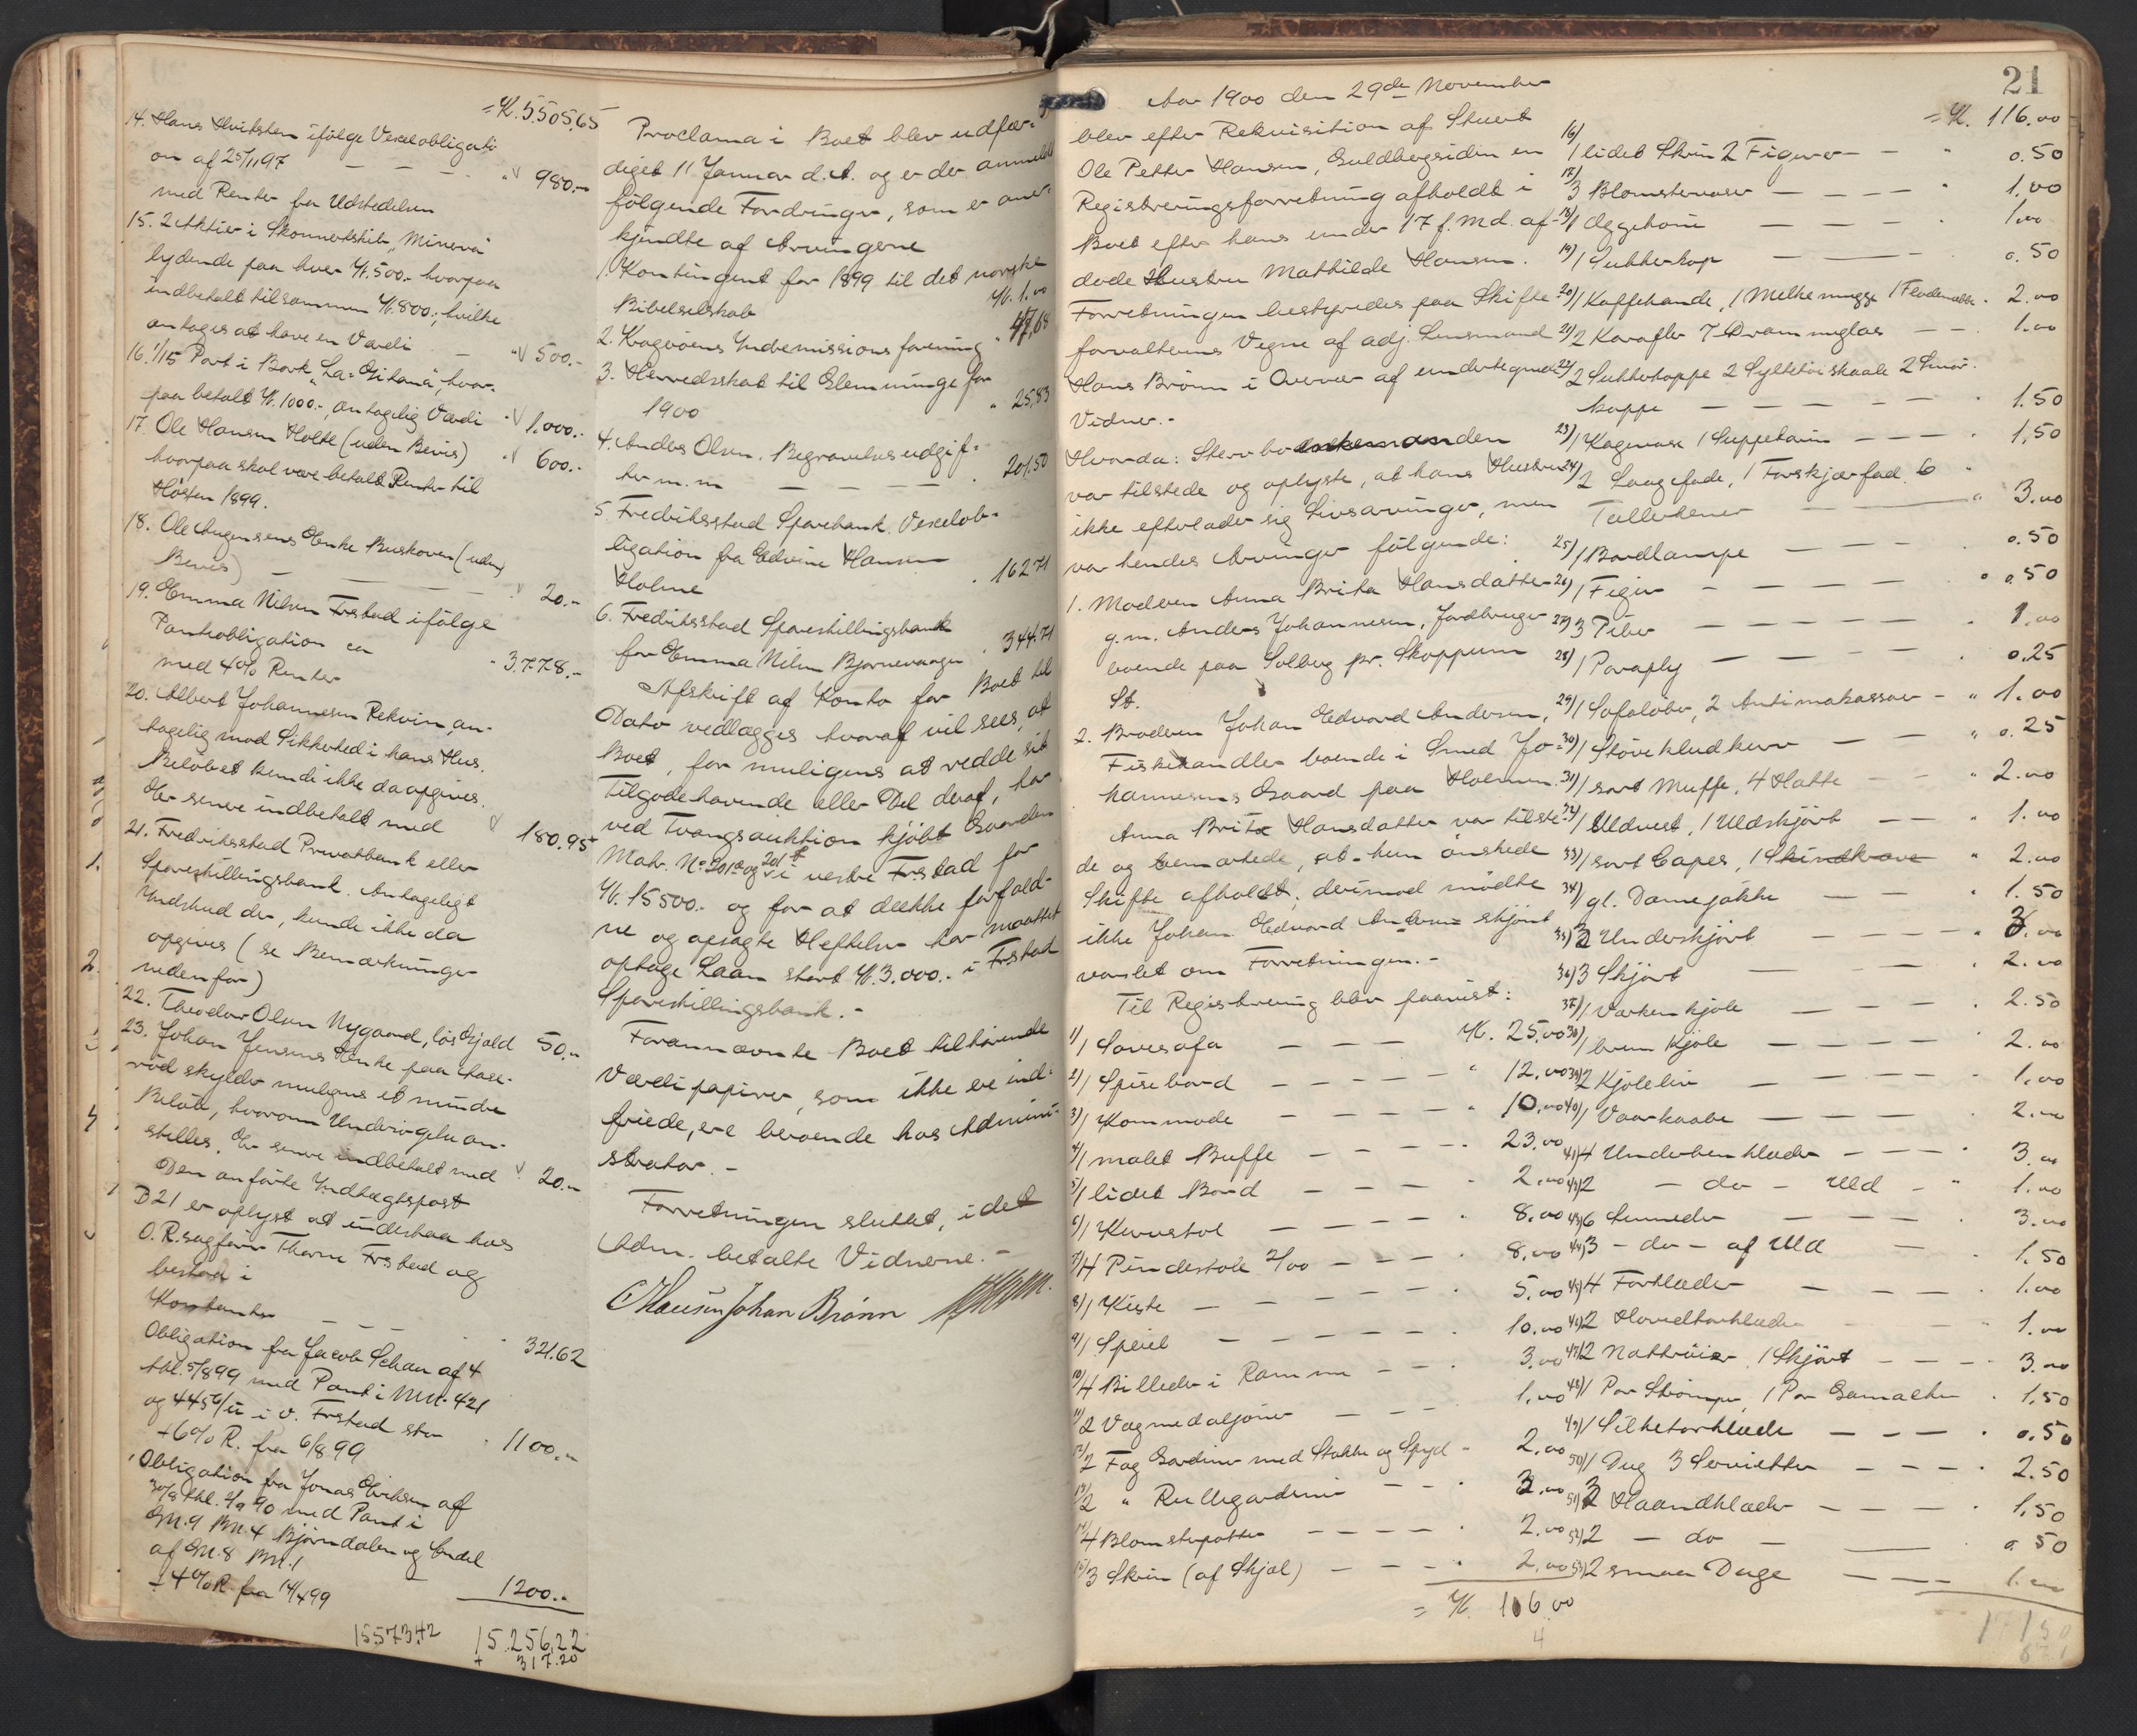 = K. 5.505,65
14. Hans Hvitsten ifölge Vexelobligati
on af 25/11 97 — — — " 980.-
med Renter fra Udstedelsen
15. 2 Aktier i Skonnertskib "Minerva"
lydende paa hver K. 500.- hvorpaa
indbetalt tilsammen K. 800.-, hvilke
antages at have en Værdi — " 500.-
16. 1/15 Part i Bark "La Gitana", hvor-
paa betalt K. 1000.-, antagelig Værdi " 1.000.-
17. Ole Hansen Holte (uden Bevis) " 600.-
hvorpaa skal være betalt Renter til
Hösten 1899.
18. Ole Augensens Enke Buskoven (uden
Bevis) — — " 20.-
19. Emma Nilsen Frstad ifölge
Panteobligation ca " 3.778.-
med 4% Renter
20. Albert Johannesen Rekvin, an-
tagelig mod Sikkerhed i hans Hus.
Belöbet kunde ikke da opgives.
Er senere indbetalt med 180.95
21. Fredriksstad Privatbank eller
Spareskillingsbank. Antageligt
Indskud der, kunde ikke da
opgives (se Bemærkninger
nedenfor)
22. Theodor Olsen Nygaard, lös Gjæld 50.-
23. Johan Jensens Enke paa Aase-
röd skylder muligens et mindre
Belöb, hvorom Undersögelse an-
stilles. Er senere indbetalt med 20.-
Den anförte Indtægtspost
D 21 er oplyst at indestaa hos
O. R. sagförer Thorne Frstad og
bestaa i
Kontanter — — — " 321.62
Obligation fra Jacob Schau af 4
thl. 5/8 99 med Pant i MN. 421
og 445 b/ü i v. Frstad stor " 1100.-
+ 6% R. fra 6/8 99
Obligation fra Jonas Eriksen af
30/8 thl. 2/9 90 med Pant i
GN. 9 BN. 4 Björndalen og Endel
af GN. 8 BN. 1
+ 4% R. fra 14/4 99 1200.-
15573.42 15.256,22
+ 317.20
Proclama i Boet blev udfær-
diget 11 Januar d. A. og er der anmeldt
fölgende Fordringer, som er aner-
kjendte af Arvingerne
1. Kontingent for 1899 til det norske
Bibelselskab K. 1.00
2. Kragerøens Indremissionsforening " 47,68
3. Herredsskat til Glemminge for
1900 " 25,83
4. Anders Olsen. Begravelsesudgif-
ter m. m — — — " 201.50
5. Fredriksstad Sparebank. Vexelob-
ligation fra Edvine Hansen
Holme " 162.71
6. Fredriksstad Spareskillingsbank
for Emma Nilsen Bjørnevaagen " 344.71
Afskrift af Konto for Boet til
Dato vedlægges hvoraf vil sees, at
Boet, for muligens at redde sit
Tilgodehavende eller Del deraf, har
ved Tvangsauktion kjöbt Gaarden
Matr. No 201 e og 201 f i vestre Frstad for
K. 15500.- og for at dække forfald-
ne og opsagte Heftelser har maattet
optage Laan stort K. 3.000.- i Frstad
Spareskillingsbank.-
Forannævnte Boet tilhörende
Værdipapirer, som ikke ere ind-
friede, ere beroende hos Admini-
strator.-
Forretningen sluttet, idet
Adm. betalte Vidnerne.-
C Hansen Johan Brönn
21
Aar 1900 den 29de November
blev efter Rekvisition af Stuert
Ole Petter Hansen, Guldbergsiden en
Registreringsforretning afholdt i
Boet efter hans under 17 f. Md. af-
döde Hustru Mathilde Hansen.
Forretningen bestyredes paa Skifte-
forvalterens Vegne af adj. Lensmand
Hans Brönn i Overvær af undertegnede
Vidner.-
Hvorda: Stervboenkemanden
var tilstede og oplyste, at hans Hustru
ikke efterlader sig Livsarvinger, men
var hendes Arvinger fölgende:
1. Moderen Anna Brita Hansdatter
g. m. Anders Johannesen, Jordbruger
boende paa Solberg pr. Skoppum
St.
2. Broderen Johan Edvard Andersen,
Fiskehandler boende i Smed Jo-
hannesens Gaard paa Holmen.
Anna Brita Hansdatter var tilste-
de og bemærkede, at hun önskede
Skifte afholdt; derimod mödte
ikke Johan Edvard Andersen skjönt
varslet om Forretningen.-
Til Registrering blev paavist:
1) 1 Sovesofa — — — K. 25.00
2) 1 Spisebord — — — " 12.00
3) 1 Kommode — — — " 10.00
4) 1 malet Buffe — — — " 23.00
5) 1 lidet Bord — — — 2.00
6) 1 Kurvstol — — — " 8.00
7) 4 Pindestole 2/00 — — — 8.00
8) 1 Kiste — — — 5.00
9) 1 Speil — — — 10.00
10) 4 Billeder i Ramme — — 3.00
11) 2 Vægmedaljoner — — 1.00
12) 2 Fag Gardiner med Stokke og Spyd - 2.00
13) 2 " Rullegardiner — — 3.00
14) 4 Blomsterpotter — — — 2.00
15) 3 Skrin (af Skjæl) — — 2.00
= K. 116.00
4
= K. 116.00
16) 1 lidet Skrin 2 Figurer — — " 0.50
17) 3 Blomstervaser — — — " 1.00
18) 1 Æggehöne — — " 1.00
19) 1 Sukkerkop — — — 0.50
20) 1 Kaffekande, 1 Melkemugge 1 Flödemugge 2.00
21) 2 Karafler 7 Dramneglas — — 1.00
22) 2 Sukkerkoppe 2 Syltetöiskaale 2 Smör-
koppe — — — " 1.50
23) 1 Kagevase 1 Suppeterin — — " 1,50
24) 2 Laagefade, 1 Forskjærfad 6
Tallerkener — " 3.00
25) 1 Bordlampe — — — 0.50
26) 1 Figur — — — " 0.50
27) 3 Piber — — — 1.00
28) 1 Paraply — — — 0.25
29) 1 Sofalöber, 2 Antimakassar — " 1.00
30) 1 Stövekludkurv — — " 0.25
31) 1 sort Muffe, 4 Hatte — " 2.00
32) 1 Uldvest, 1 Uldskjört — — " 1.00
33) 1 sort Capes, 1 Skindkrave " 2.00
34) 1 gl. Damejakke — " 1.50
35) 2 Underskjört — — — " 3.00
36) 3 Skjört — — " 2.00
37) 1 Verkenkjole — — " 2.50
38) 1 brun Kjole — — — 2.00
39) 2 Kjoleliv — — — 1.00
40) 1 Vaarkaabe — — — " 2.00
41) 4 Underbenklæder — — — 3.00
42) 2 — do — Uld — " 1.00
43) 6 Linneder — — — 3.00
44) 3 — do — af Uld — 1.50
45) 4 Forklæder — — — 1.00
46) 2 Hovedtörklæder — — 1.00
47) 2 Nattröier, 1 Skjört — — 3.00
48) 1 Par Strömper, 1 Par Gamacher " 1,50
49) 1 Silketörklæde — — — " 0.50
50) 1 Dug 3 Servietter — — — " 2.50
51) 2 Haandklæder — — — " 1,50
52) 2 — do — — 0.50
53) 2 smaa Duge — — 1.00